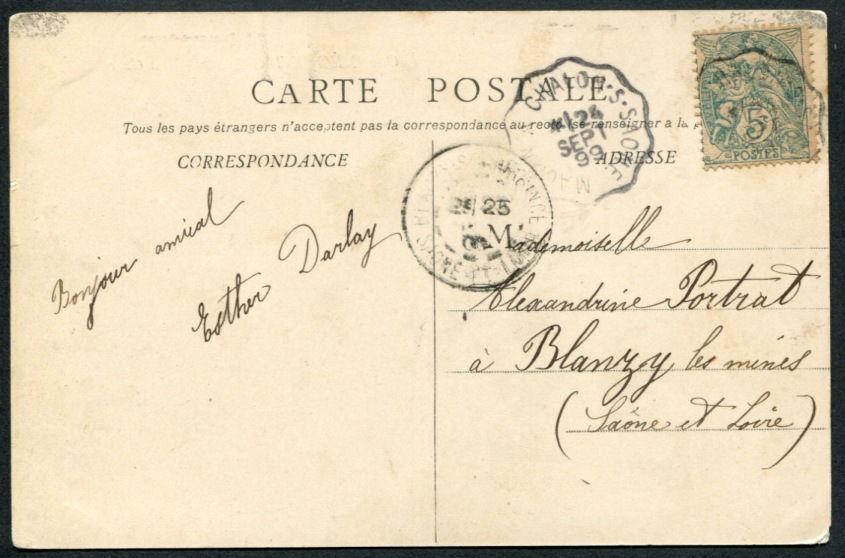 CARTE POSTALE
Tous les pays étrangers n'acceptent pas la correspondance au recto (se renseigner a la p
CORRESPONDANCE
ADRESSE
Bonjour amical
Esther Darlay
Mademoiselle
Alexandrine Portrat
à Blanzy les mines
(Saône et Loire)
CHALON-S-SAONE
24
SEPT
25
SAONE-ET-LOIRE
5
POSTES